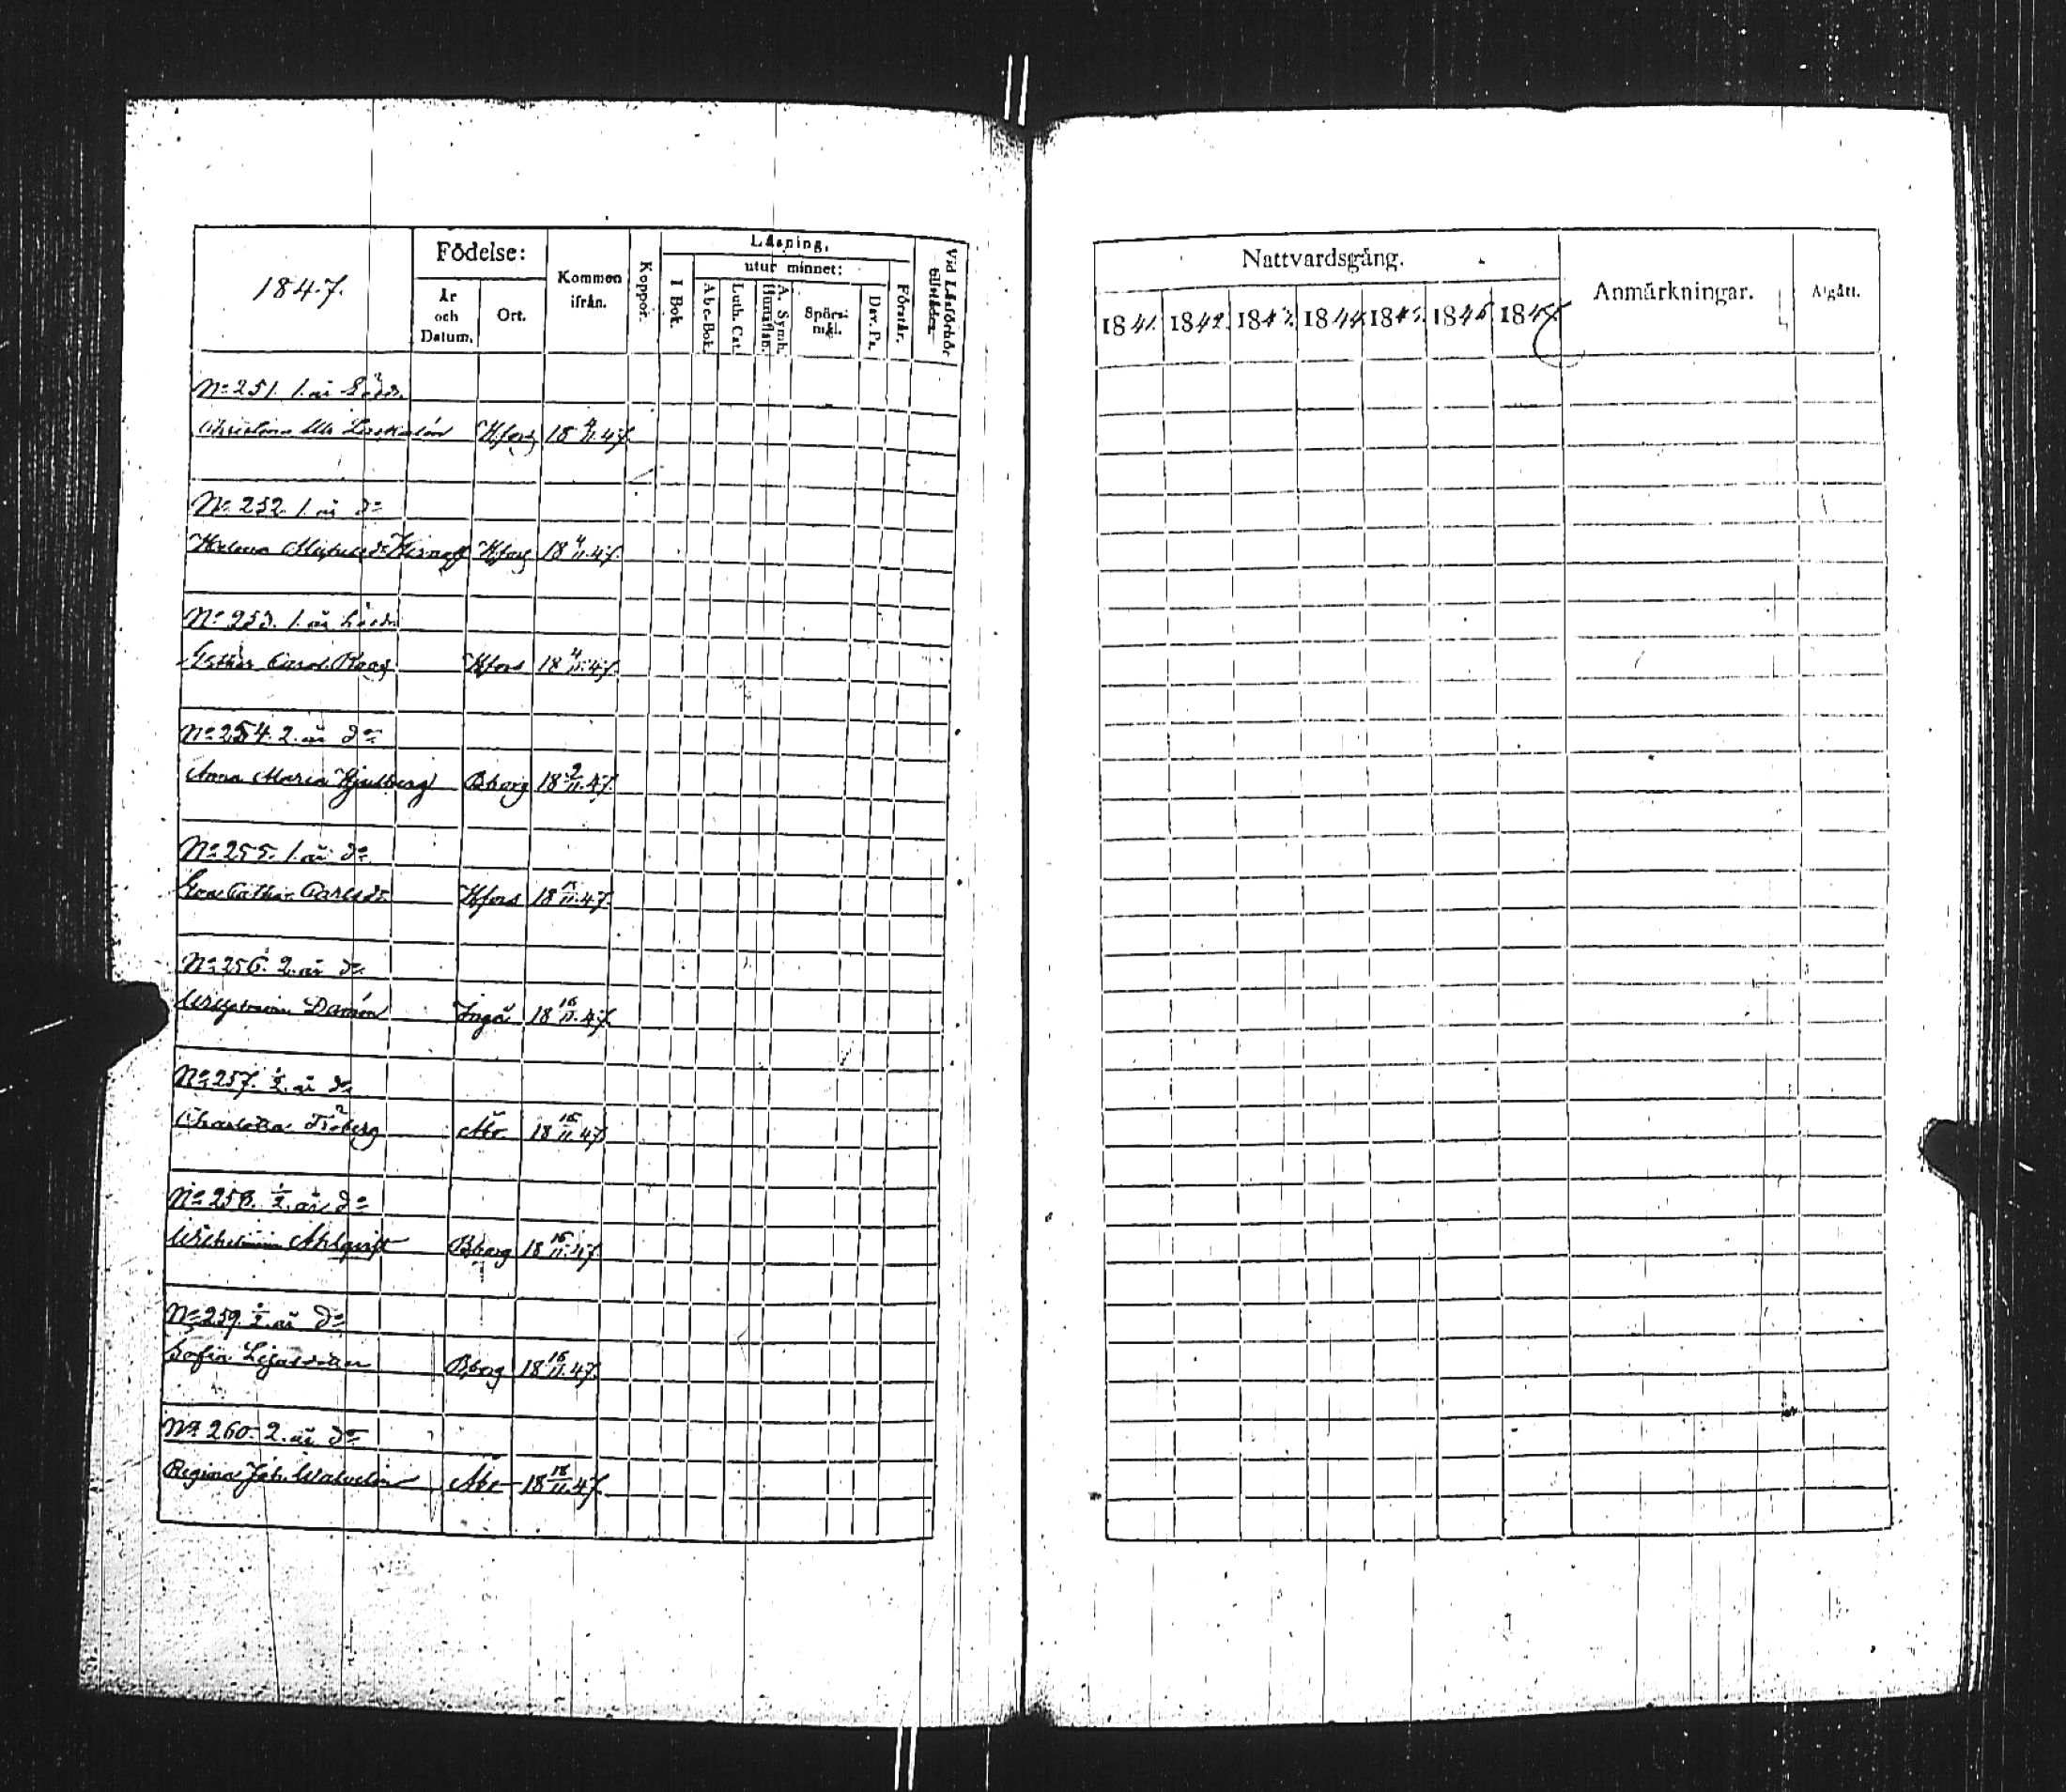 1847.
Födelse:
År och Datum.
Ort.
Kommen ifrån.
Koppor.
Läsning.
I Bok.
utur minnet:
Abc-Bok.
Luth. Cat.
A. Symb. Hustaflan.
Spörsmål.
Dav. Ps.
Förstår.
Vid Läsförhör tillstädes.
No 251. 1. år
Christina Ulr Hfors 18 4/11 47.
No 252 1. år do
Helena Hfors 18 4/11 47.
No 253. 1. år
Carol. Hfors 18 4/11 47.
No 254. 2. år do
Anna Maria Bborg 18 2/11 47.
No 255. 1. år do
Eva Cathar. Carlsdr Hfors 18 /11 47.
No 256. 2. år do
Ingå 18 16/11 47.
No 257. 1/2. år do
Charlotta Åbo 18 16/11 47
No 258. 1/2. år do
Wilhelmina Ahlqvist Bborg 18 16/11 47
No 259. 1/2. år do
Sofia Bborg 18 16/11 47.
No 260. 2. år do
Regina Åbo 18 18/11 47.
Nattvardsgång.
Anmärkningar.
Afgått.
1841. 1842. 1843. 1844. 1845. 1846. 184